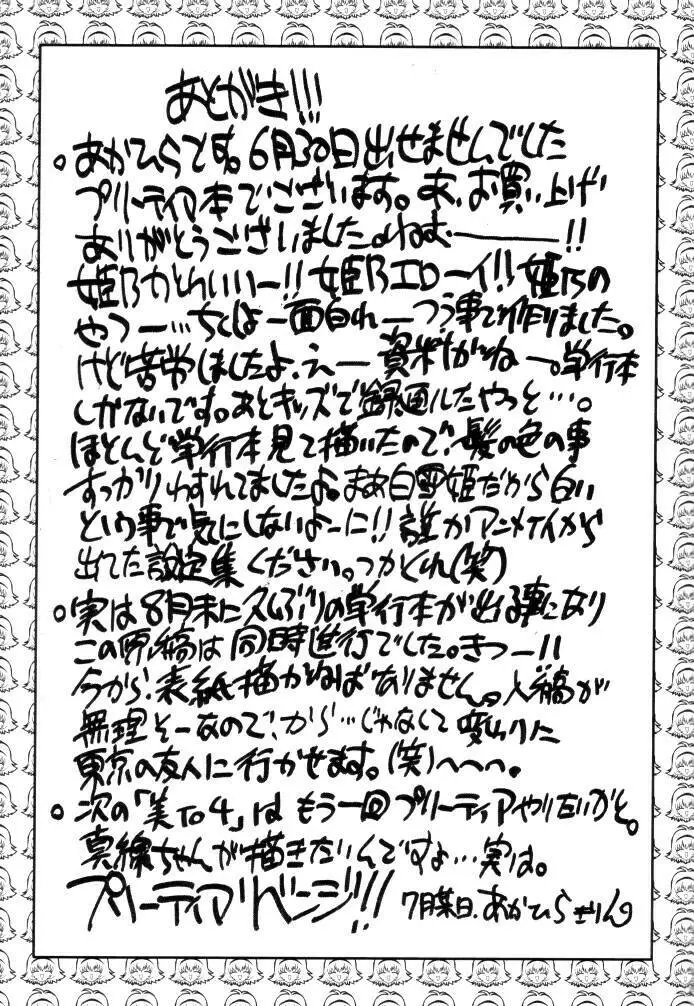 あとがき!!!
。あかひらです。6月30日出せませんでした
プリーティア本でございます。あ、お買い上げ
ありがとうございました。ねむ———!!
姫乃かわいいー!! 姫乃エローイ!! 姫乃の
やつー…ちくしょー面白れーつう事で作りました。
けど苦労しましたよ、えー資料がねー。単行本
しかないです。あとキッズで録画したやつと…。
ほとんど単行本見て描いたので、髪の色の事
すっかりわすれてましたよ。まあ白雪姫だから白い
という事で気にしないよーに!! 誰かアニメイから
出てた設定集ください。つかくれ(笑)
。実は8月末に久しぶりの単行本が出る事になり
この原稿は同時進行でした。きつー!!
今から、表紙描かねばありません。入稿が
無理そーなので、から…じゃなくて変わりに
東京の友人に行かせます。(笑)へへへ。
。次の「美To4」はもう一回プリーティアやりたいかと。
真綿ちゃんが描きたいんですょ…実は。
プリーティアリベンジ!! 7月某日.あかひらきりん